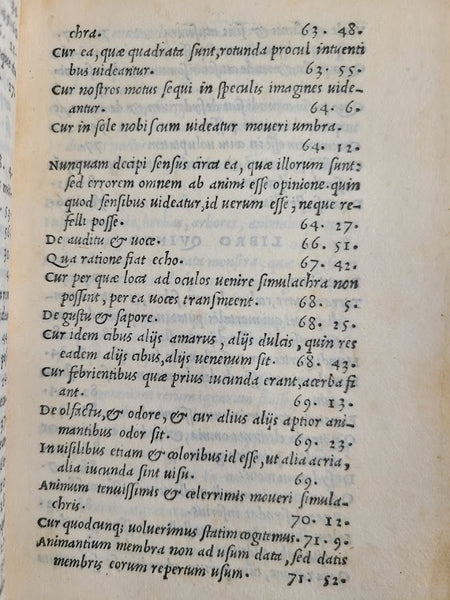 chra. 63. 48.
Cur ea, quæ quadrata sunt, rotunda procul intuenti
bus uideantur. 63. 55.
Cur nostros motus sequi in speculis imagines uide-
antur. 64. 6.
Cur in sole nobiscum uideatur moueri umbra.
64. 12.
Nunquam decipi sensus circa ea, quæ illorum sunt:
sed errorem omnem ab animi esse opinione. quin
quod sensibus uideatur, id uerum esse, neque re-
felli posse. 64. 27.
De auditu & uoce. 66. 51.
Qua ratione fiat echo. 67. 42.
Cur per quæ loca ad oculos uenire simulachra non
possint, per ea uoces transmeent. 68. 5.
De gustu & sapore. 68. 25.
Cur idem cibus alijs amarus, alijs dulcis, quin res
eadem alijs cibus, alijs uenenum sit. 68. 43.
Cur febrientibus quæ prius iucunda erant, acerba fi
ant. 69. 13.
De olfactu, & odore, & cur alius alijs aptior ani-
mantibus odor sit. 69. 23.
In uisilibus etiam & coloribus id esse, ut alia acria,
alia iucunda sint uisu. 69.
Animum tenuissimis & celerrimis moueri simula-
chris. 70. 12.
Cur quodcunq; uoluerimus statim cogitemus. 71. 9.
Animantium membra non ad usum data, sed datis
membris eorum repertum usum. 71. 52.